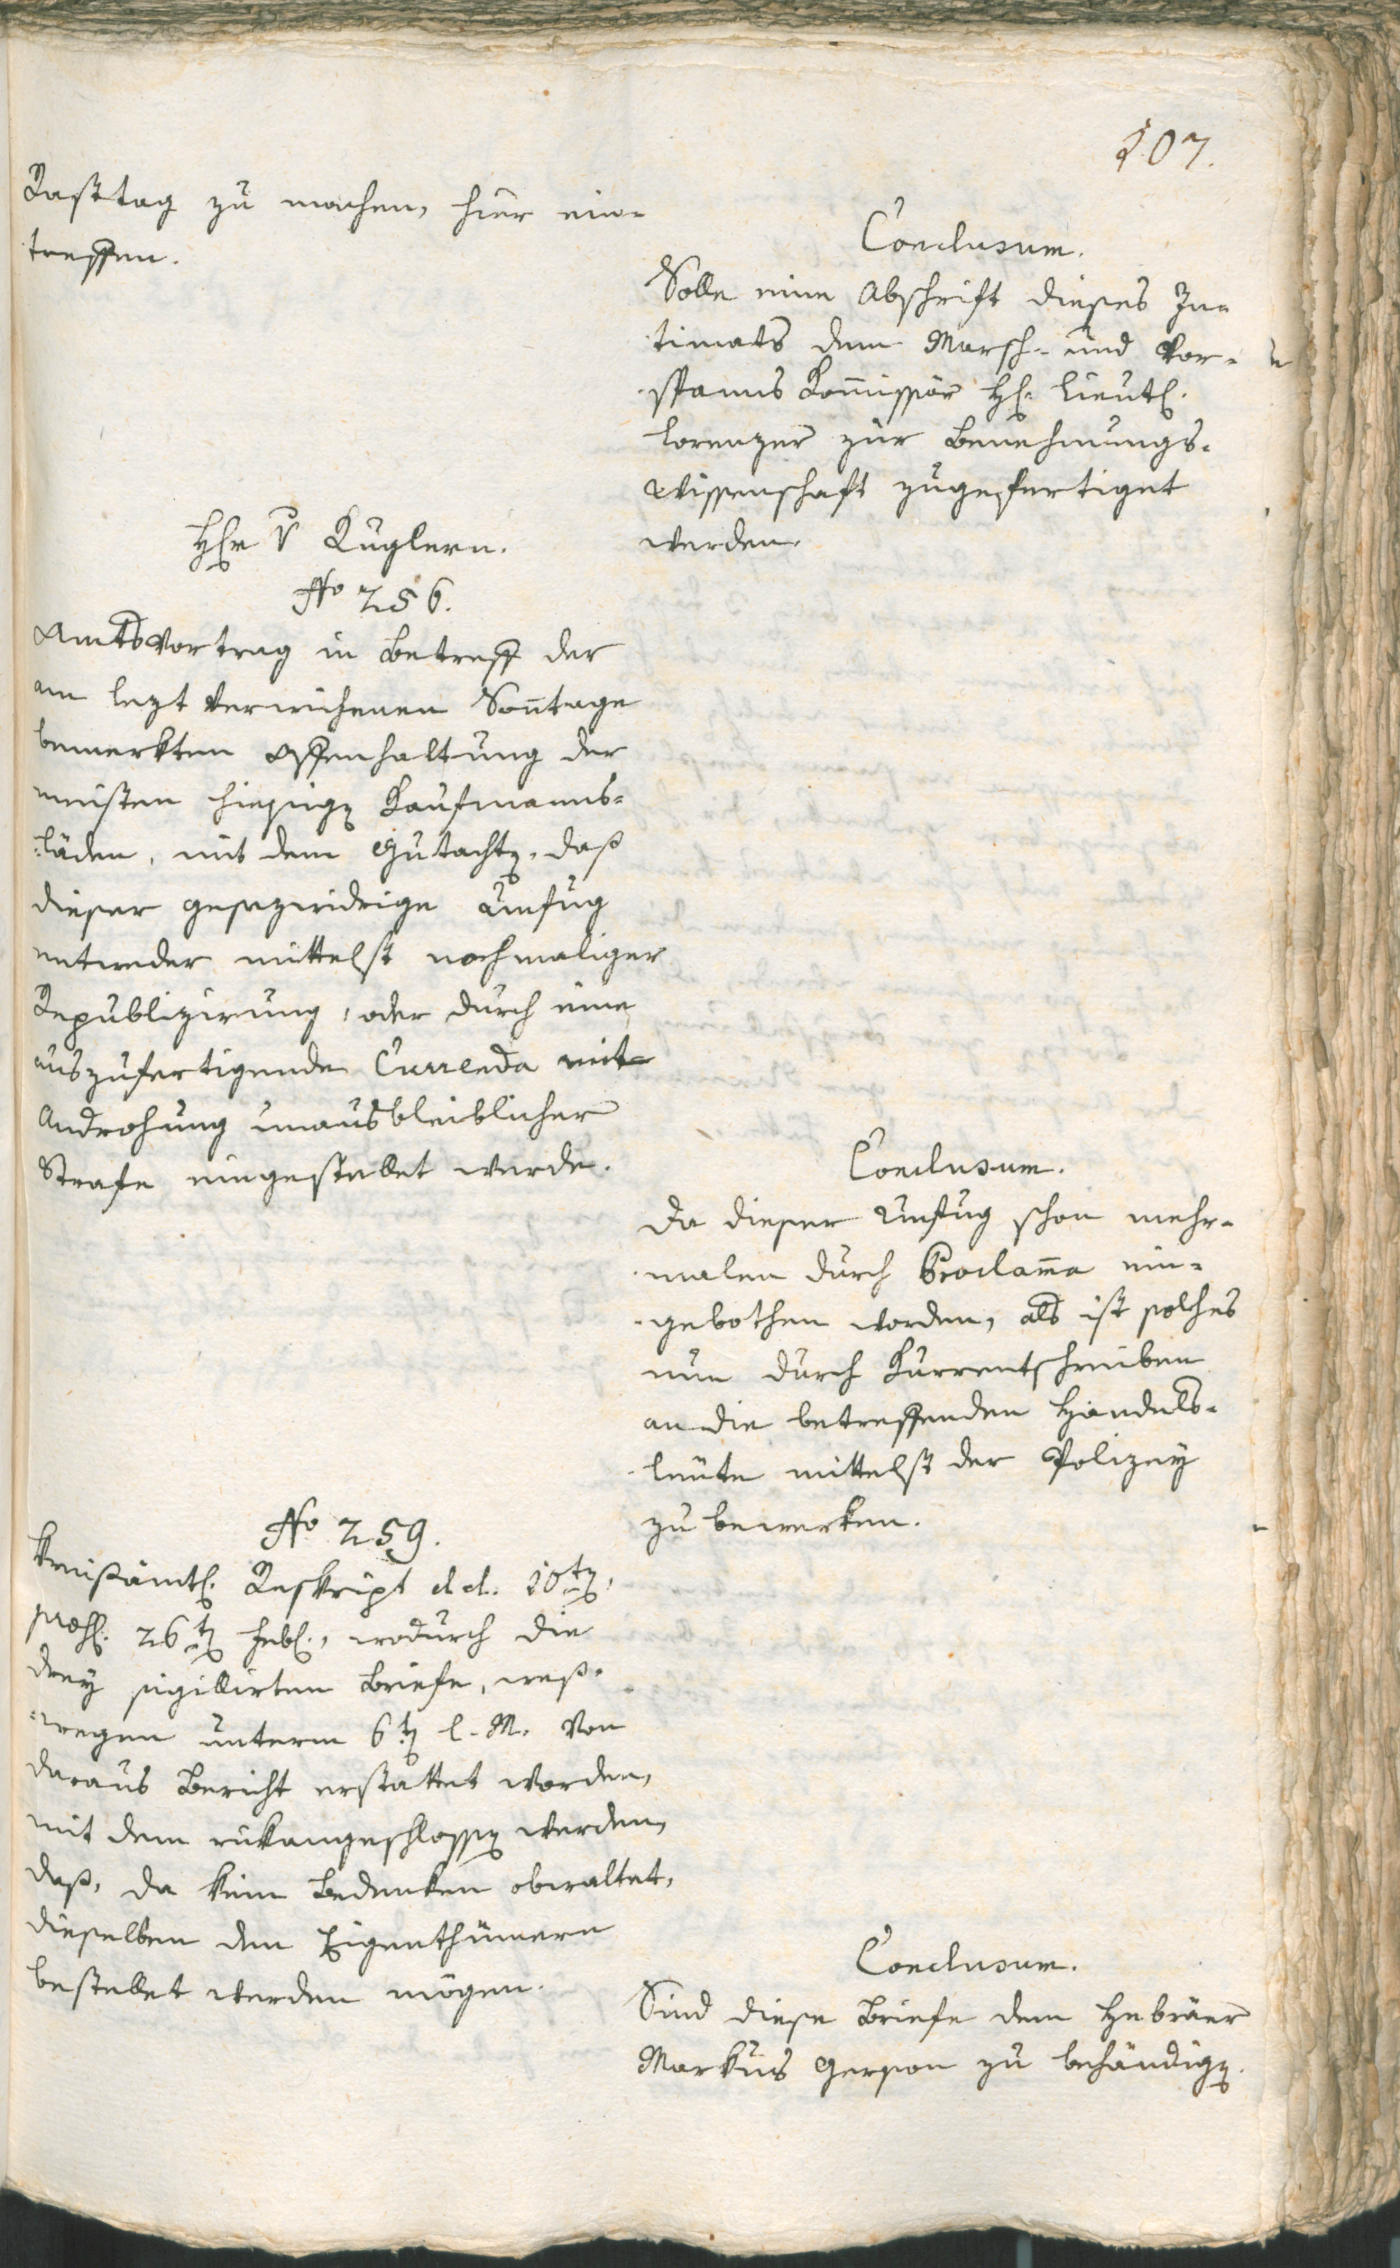 107.
Rasttag zu machen, hier ein-
treffen.
Conclusum.
Solle eine Abschrift dieses In-
timats dem Marsch- und Vor-
spanns Kom̅issär Hl. Lieutl.
Lorenzer zur Benehmungs-
Wissenschaft zugefertiget
werden.
Hr v Kuglern.
No 256.
Amtsvortrag in Betreff der
am lezt verwichenen Son̅tage
bemerkten Offenhaltung der
meisten hiesigen Kaufmanns-
läden, mit dem Gutachten, daß
dieser gesezwidrige Unfug
entweder mittelst nochmaliger
Republizirung, oder durch eine
auszufertigende Currenda mit
Androhung unausbleiblicher
Strafe eingestellet werde.
Conclusum.
Da dieser Unfug schon mehr-
malen durch Proclam̅a ein-
gebothen worden, als ist solches
nun durch Kurrentschreiben
an die betreffenden Handels-
leute mittelst der Polizey
zu bewerken.
No 259.
Kreißämtl. Reskript dd. 20ten,
præs. 26ten Febl., wodurch die
drey sigillirten Briefe, weß-
wegen unterm 6ten l. M. von
daraus Bericht erstattet worden,
mit dem rükangeschlossen werden,
daß, da kein Bedenken obwaltet,
dieselben den Eigenthümern
bestellet werden mögen.
Conclusum.
Sind diese Briefe dem Hebräer
Markus Gerson zu behändigen.